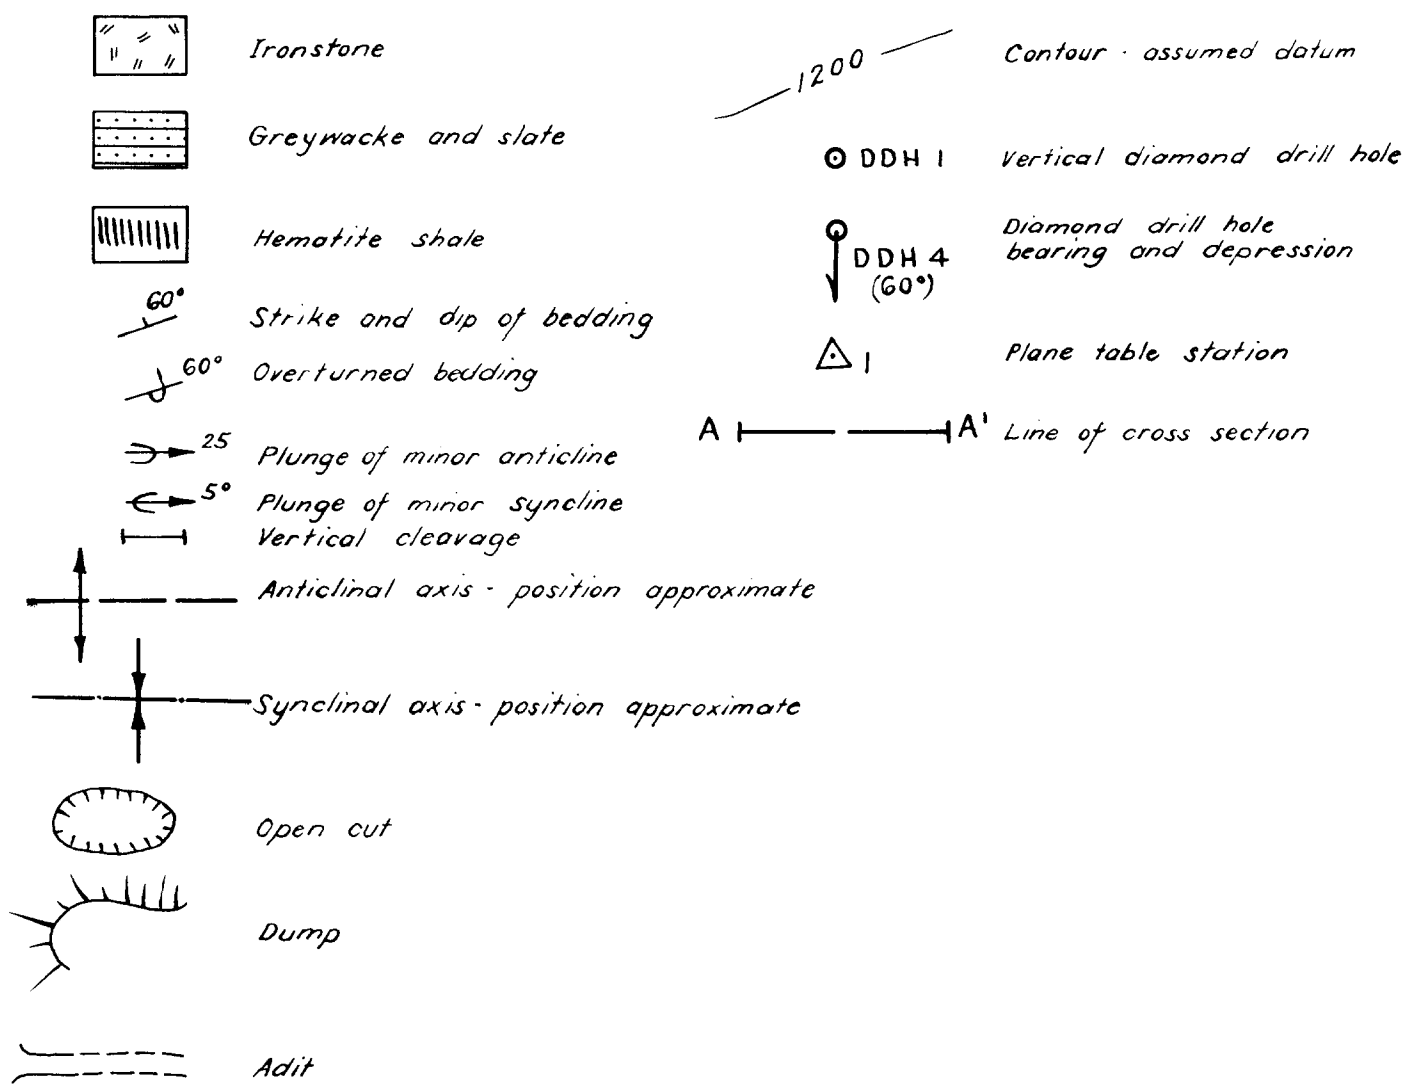 Ironstone
Greywacke and slate
Hematite shale
60°
Strike and dip of bedding
60°
Overturned bedding
25
Plunge of minor anticline
5°
Plunge of minor syncline
Vertical cleavage
Anticlinal axis - position approximate
Synclinal axis - position approximate
Open cut
Dump
Adit
1200
Contour - assumed datum
DDH 1
Vertical diamond drill hole
DDH 4
(60°)
Diamond drill hole
bearing and depression
1
Plane table station
A A'
Line of cross section